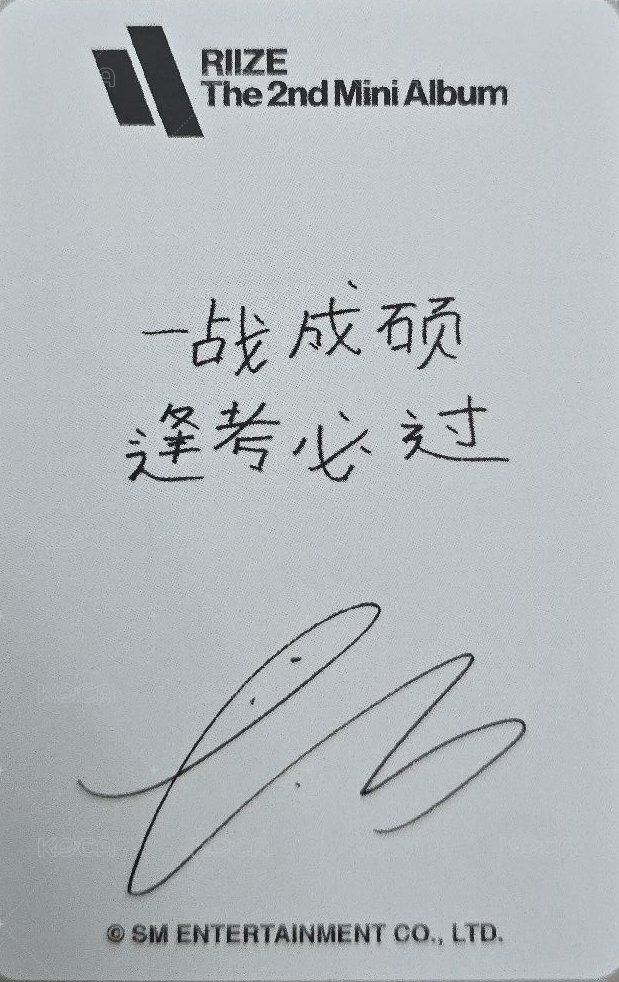 RIIZE
The 2nd Mini Album
一战成硕
逢考必过
© SM ENTERTAINMENT CO., LTD.